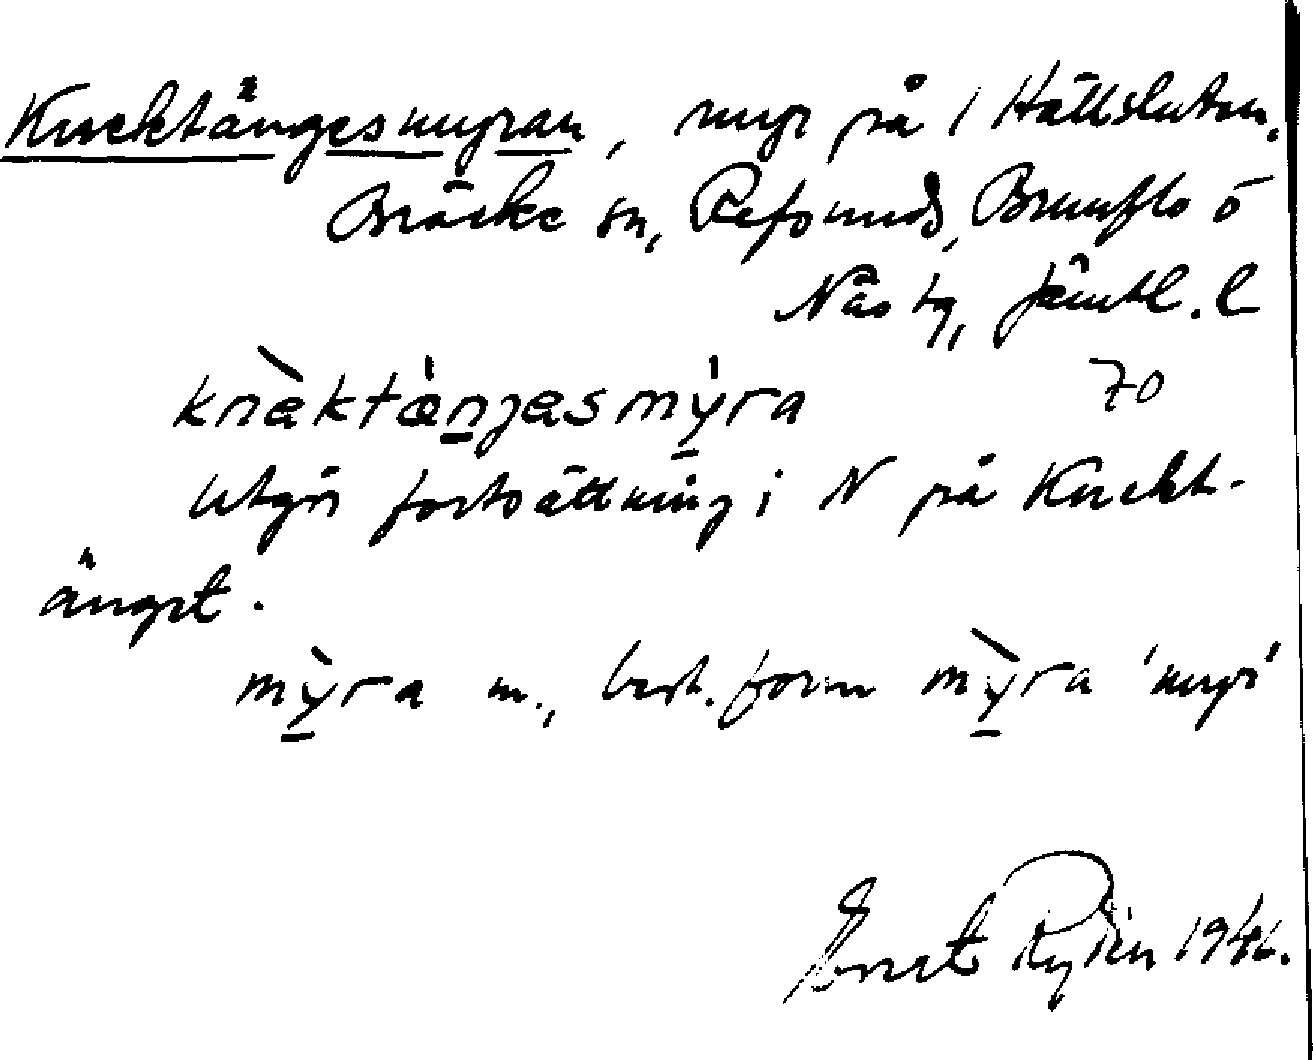 Knektängesmyran, myr på 1 Hällsluten,
Bräcke sn, Refsunds, Brunflo o
Näs tg, Jämtl. l
knæ̀ktæ̀ŋjesmý̱ra 70
Utgör fortsättning i N på Knekt-
änget.
mỳ̱ra m., best. form mỳ̱ra 'myr'
Ernst Rydén 1946.